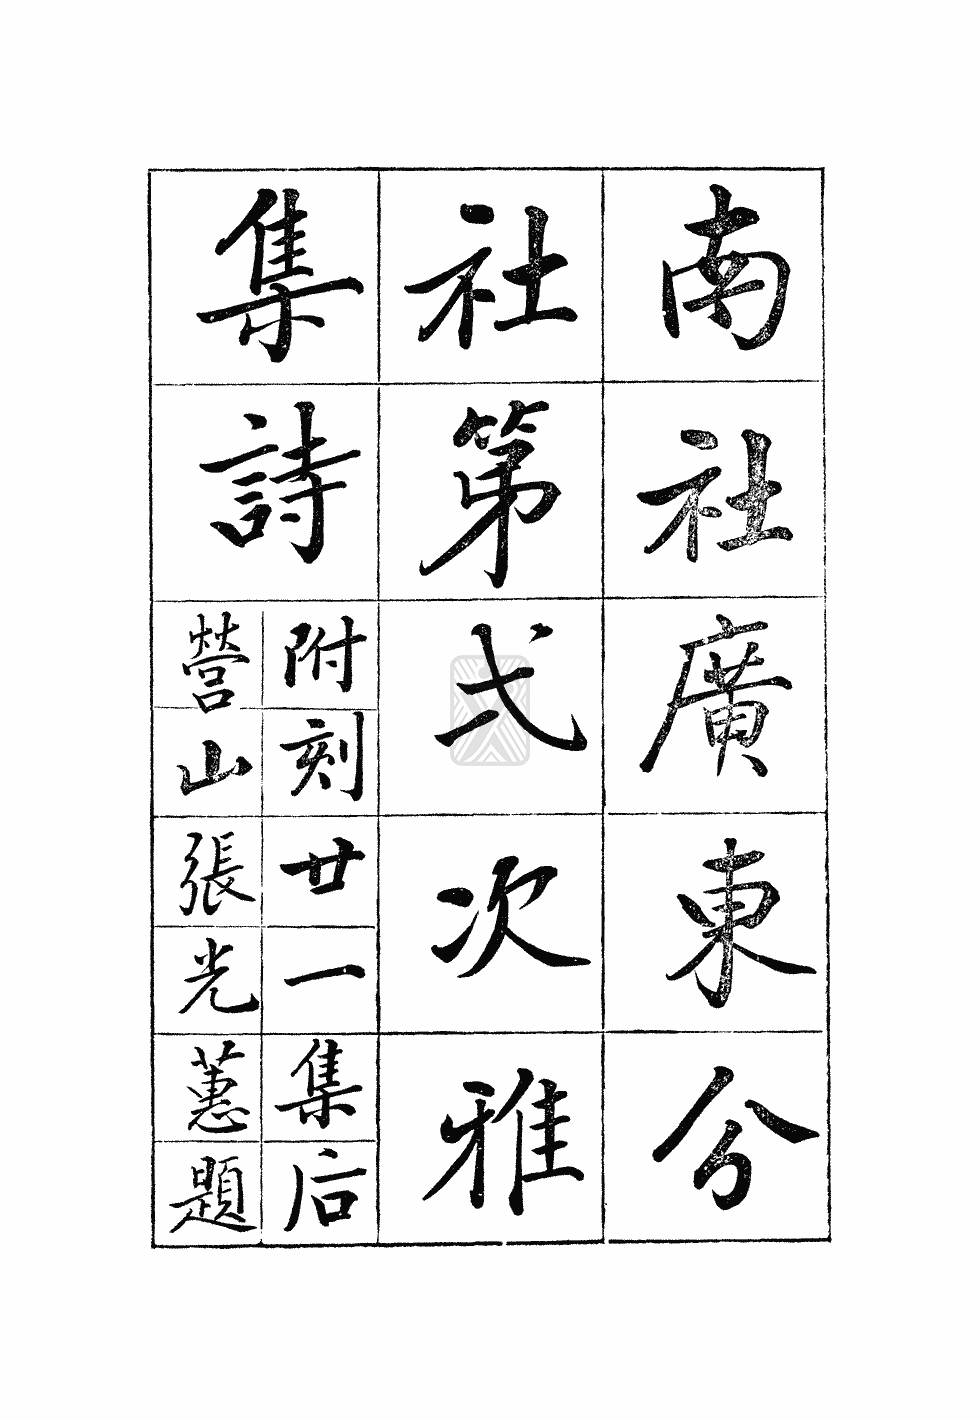 南社廣東分
社第弌次雅
集詩
附刻廿一集后
營山張光蕙題